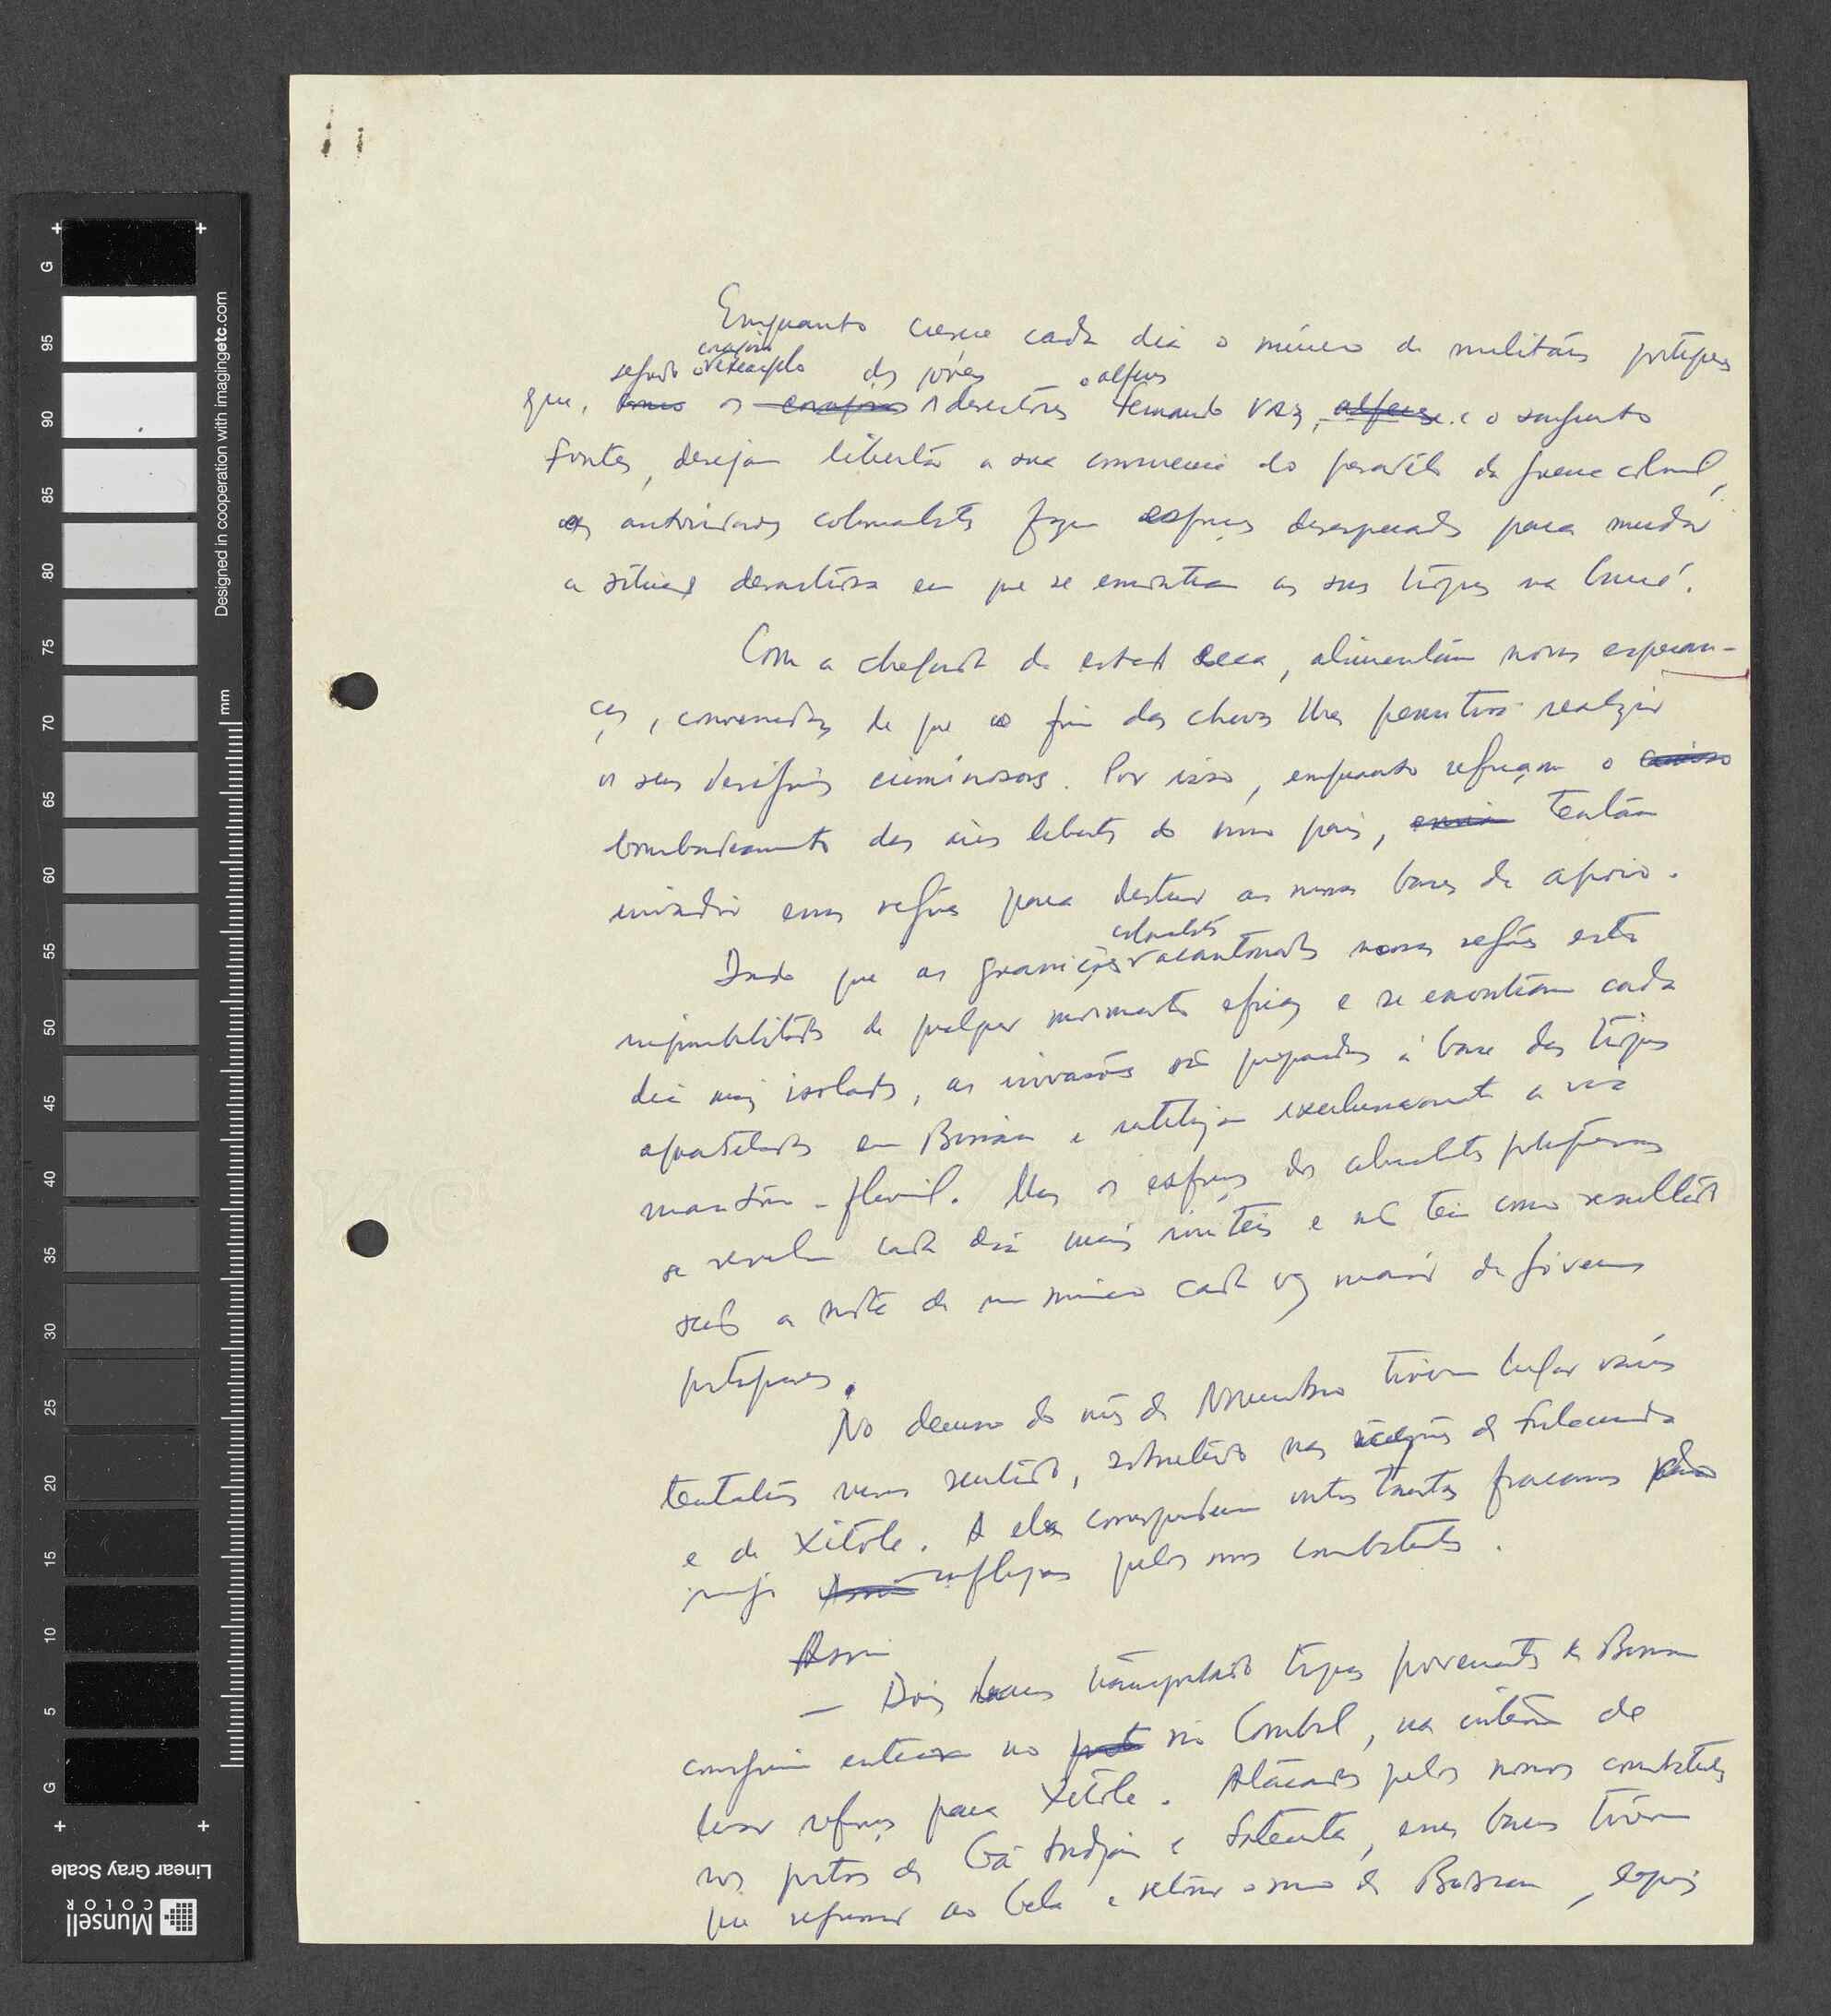 Enquanto cresce cada dia o número de militares portugueses
segundo o exemplo corajoso dos jovens o alferes
que, como os corajosos desertores Fernando Vaz, alferes e o sargento
Fontes, desejam libertar a sua consciência do pesadelo da guerra colonial,
as autoridades colonialistas fazem esforços desesperados para mudar
a situação desastrosa em que se encontram as suas tropas na Guiné.
Com a chegada da estação seca, alimentam novas esperan-
ças, convencidas de que o fim das chuvas lhes permitirá realizar
os seus desígnios criminosos. Por isso, enquanto reforçam o
bombardeamento das áreas libertadas do nosso país, tentam
invadir essas regiões para destruir as nossas bases de apoio.
Dado que as guarnições colonialistas acantonadas nessas regiões estão
impossibilitadas de qualquer movimento eficaz e se encontram cada
dia mais isoladas, as invasões são preparadas à base das tropas
aquarteladas em Bissau e utilizam exclusivamente a via
marítimo-fluvial. Mas os esforços dos colonialistas portugueses
se revelam cada dia mais inúteis e não têm como resultado
senão a morte de um número cada vez maior de jovens
portugueses.
No decurso do mês de Novembro tiveram lugar várias
tentativas nesse sentido, sobretudo nas regiões de Fulacunda
e de Xitole. A elas corresponderam outros tantos fracassos
infligidos pelos nossos combatentes.
Assim
— Dois barcos transportando tropas provenientes de Bissau
conseguiram entrar no rio Corubal, na intenção de
levar reforços para Xitole. Atacados pelos nossos combatentes
nos portos de Gã e , esses barcos tiveram
que regressar ao Geba e retomar o rumo de Bissau, depois
Designed in cooperation with imagingetc.com
mm
G
95
90
85
80
75
70
65
60
55
50
45
40
35
30
25
20
15
10
5
G
Linear Gray Scale
Munsell
COLOR